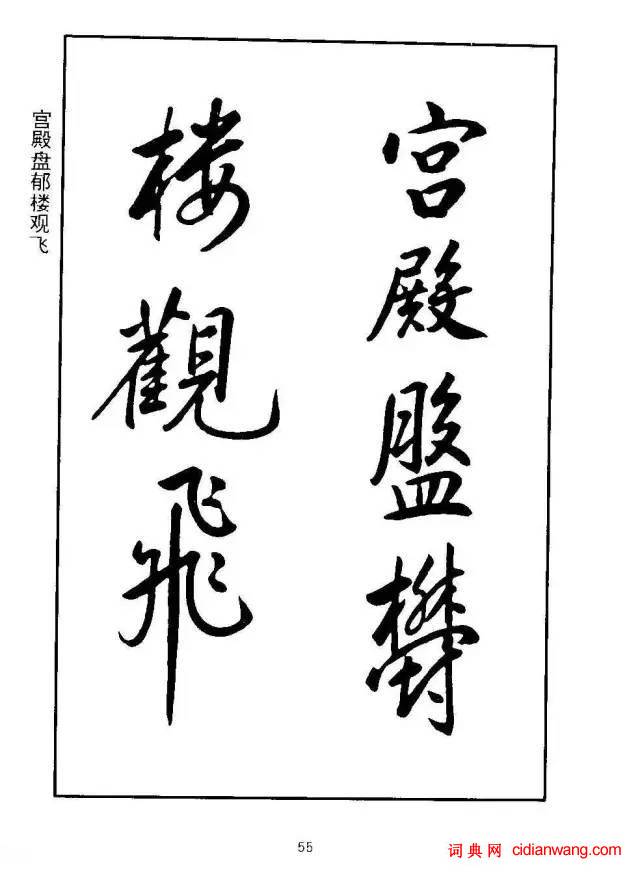 宫殿盘郁楼观飞
宮殿盤欝
楼觀飛
55
词典网 cidianwang.com